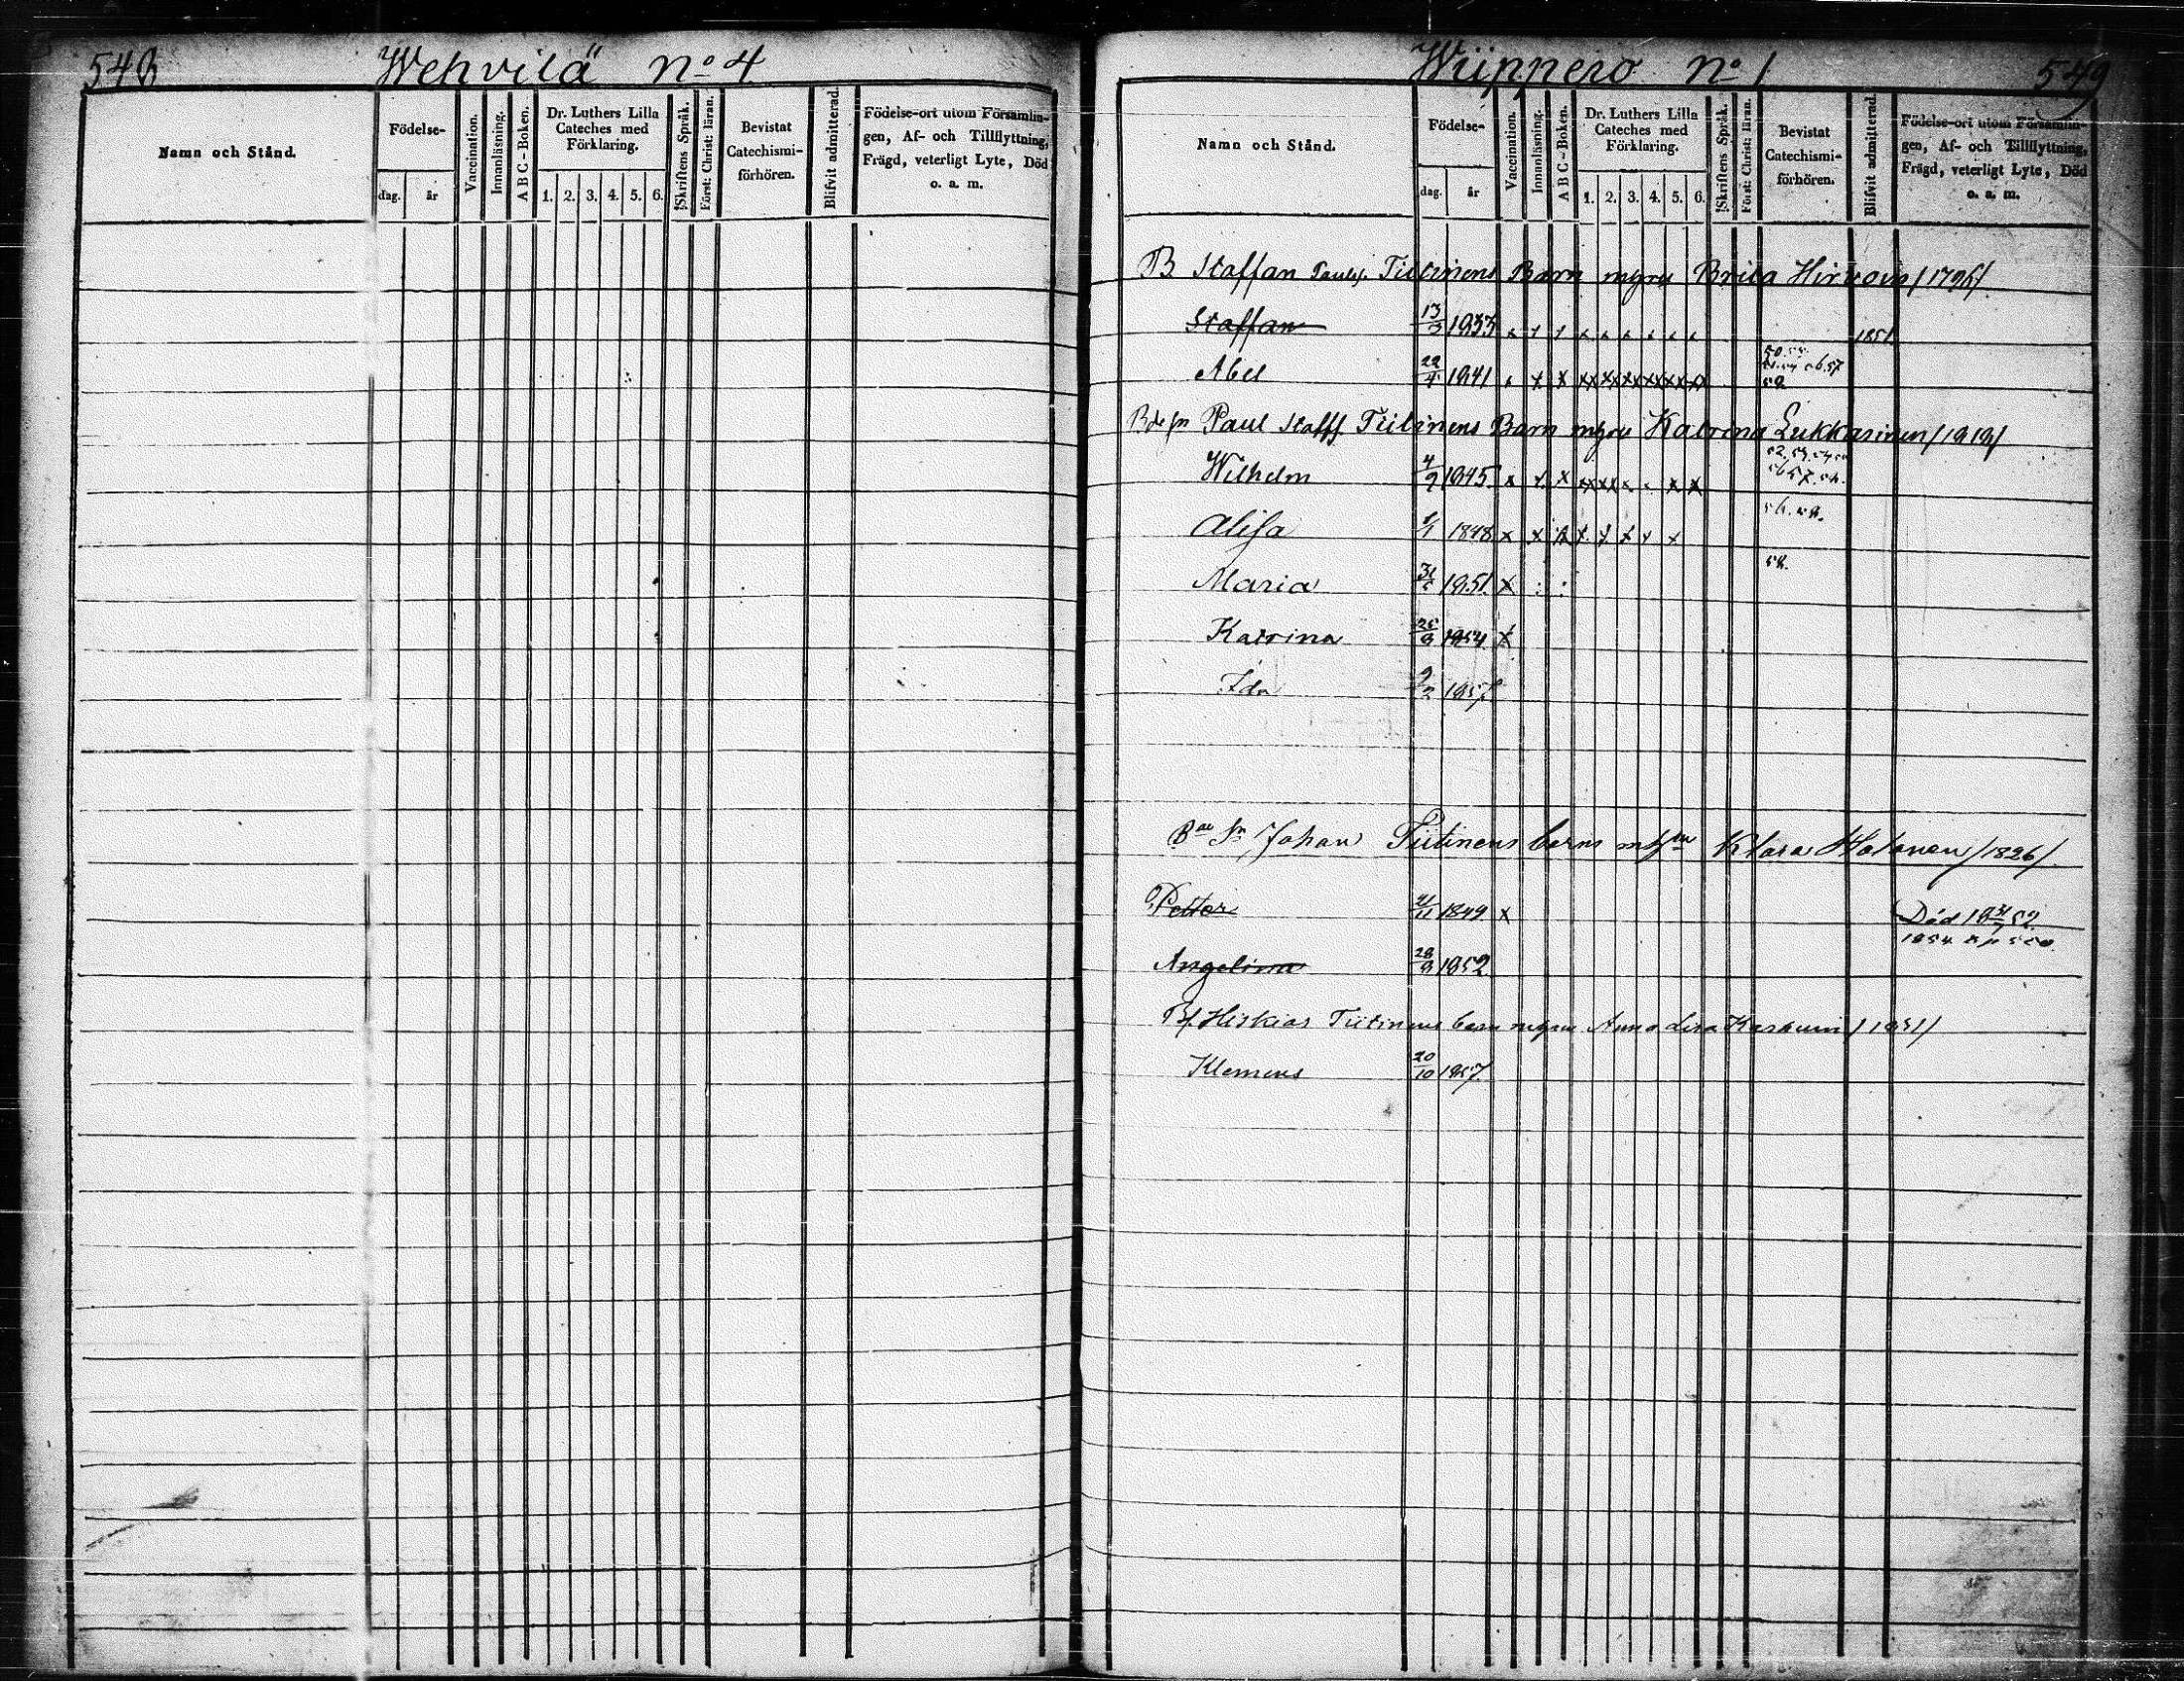 548 Wehvilä No 4
Namn och Stånd.
Födelse-
dag. år
Vaccination.
Innanläsning.
A B C - Boken.
Dr. Luthers Lilla
Cateches med
Förklaring.
1. 2. 3. 4. 5. 6.
Skriftens Språk.
Först: Christ: läran.
Bevistat
Catechismi-
förhören.
Blifvit admitterad.
Födelse-ort utom Församlin-
gen, Af- och Tillflyttning,
Frägd, veterligt Lyte, Död
o. a. m.
Wiippero No 1 549
Namn och Stånd.
Födelse-
dag. år
Vaccination.
Innanläsning.
A B C - Boken.
Dr. Luthers Lilla
Cateches med
Förklaring.
1. 2. 3. 4. 5. 6.
Skriftens Språk.
Först: Christ: läran.
Bevistat
Catechismi-
förhören.
Blifvit admitterad.
Födelse-ort utom Församlin-
gen, Af- och Tillflyttning,
Frägd, veterligt Lyte, Död
o. a. m.
B Staffan Tiitinens Barn Brita Hirvoin /1796/
Staffan 13/3 1833 1851
Abel 22/4 1841 x x xx xx xx xx xx xx
Paul Staffs Tiitinens Barn Katrina Lukkarinen /1818/
Wilhelm 4/2 1845 x x x
Alisa 1/1 1848 x x x x x x x x
Maria 1851 x
Katrina 25/8 1854 x
Ida 1857
Johan Tiitinens barns Klara Holanen /1826/
Petter 21/11 1849 x Död
Angelina 28/8 1852
Hiskias Tiitinens barn Anna Lisa /1831/
Klemens 20/10 1857